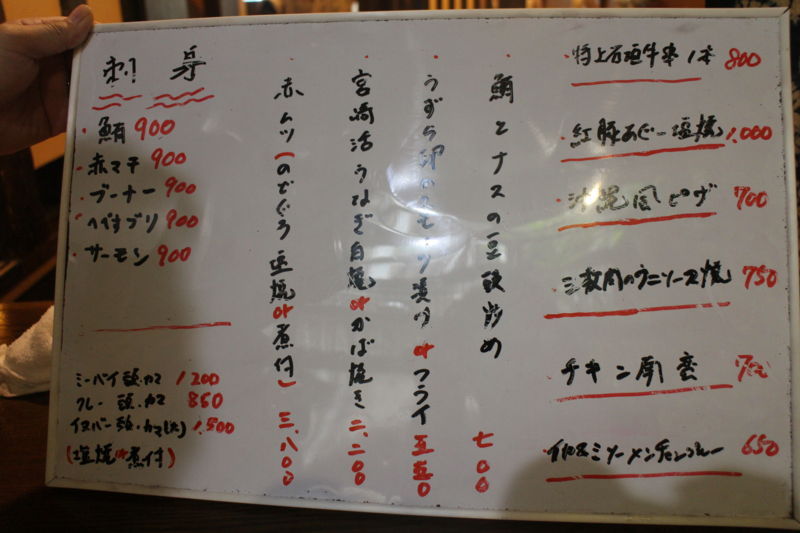 刺身
鮪 900
赤マチ 900
ブーナー 900
へべすブリ 900
サーモン 900
ミーバイ頭・カマ 1200
クレー 頭・カマ 850
イヌバー頭・カマ(大) 1,500
(塩焼or煮付)
赤ムツ(のどぐろ塩焼or煮付) 三、八〇〇
宮崎活うなぎ白焼orかば焼き 二、二〇〇
うずら卵のスモーク漬けorフライ 五五〇
鮪とナスの豆鼓炒め 七〇〇
特上石垣牛串1本 800
紅豚あぐー塩焼 1,000
沖縄風ピザ 700
三枚肉のウニソース焼 750
チキン南蛮 700
ソーメンチャンプルー 650